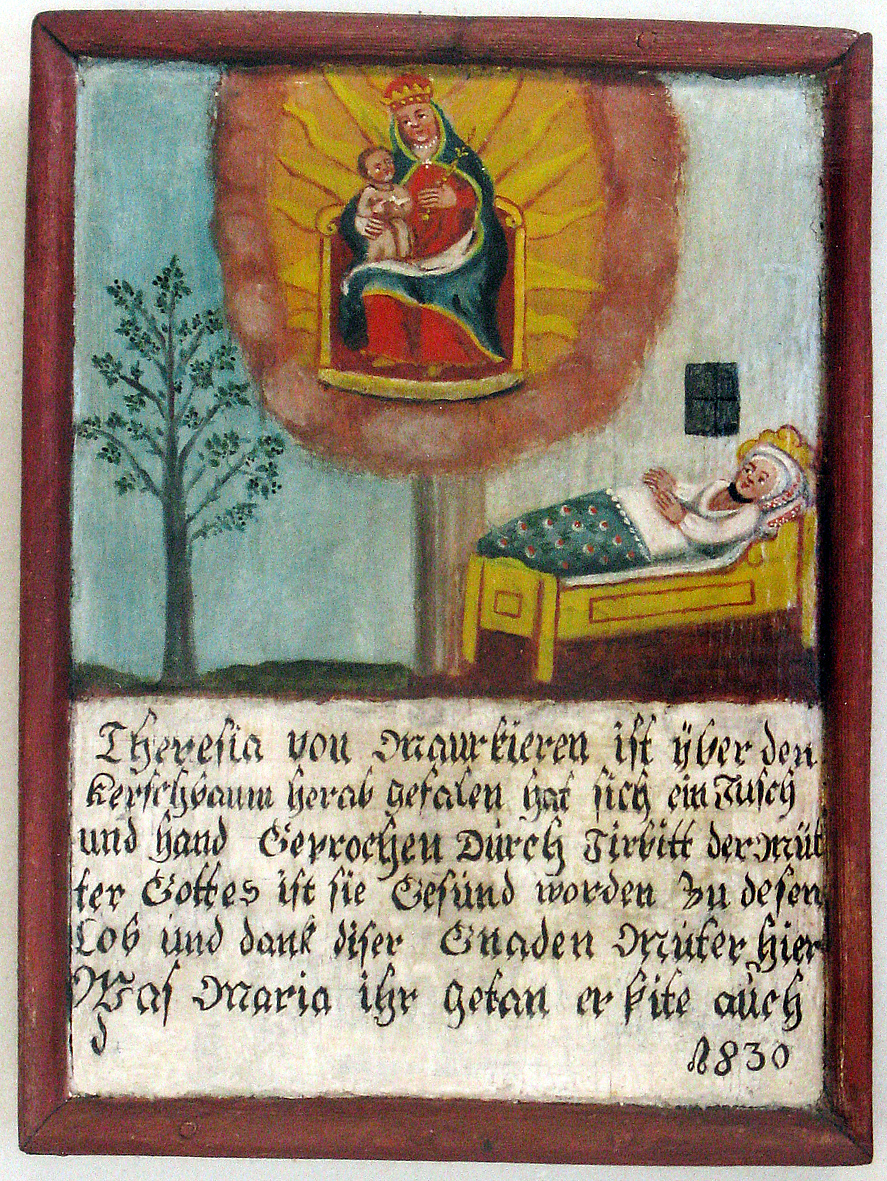 Theresia von Maurkieren ist ÿber den
kerschbaum herab gefalen hat sich ein Fusch
und hand Geprochen Durch Firbitt der Müt
ter Gottes ist sie Gesünd worden Zu desen
Lob und dank diser Gnaden Müter hier
Was Maria ihr getan er kite auch
1830